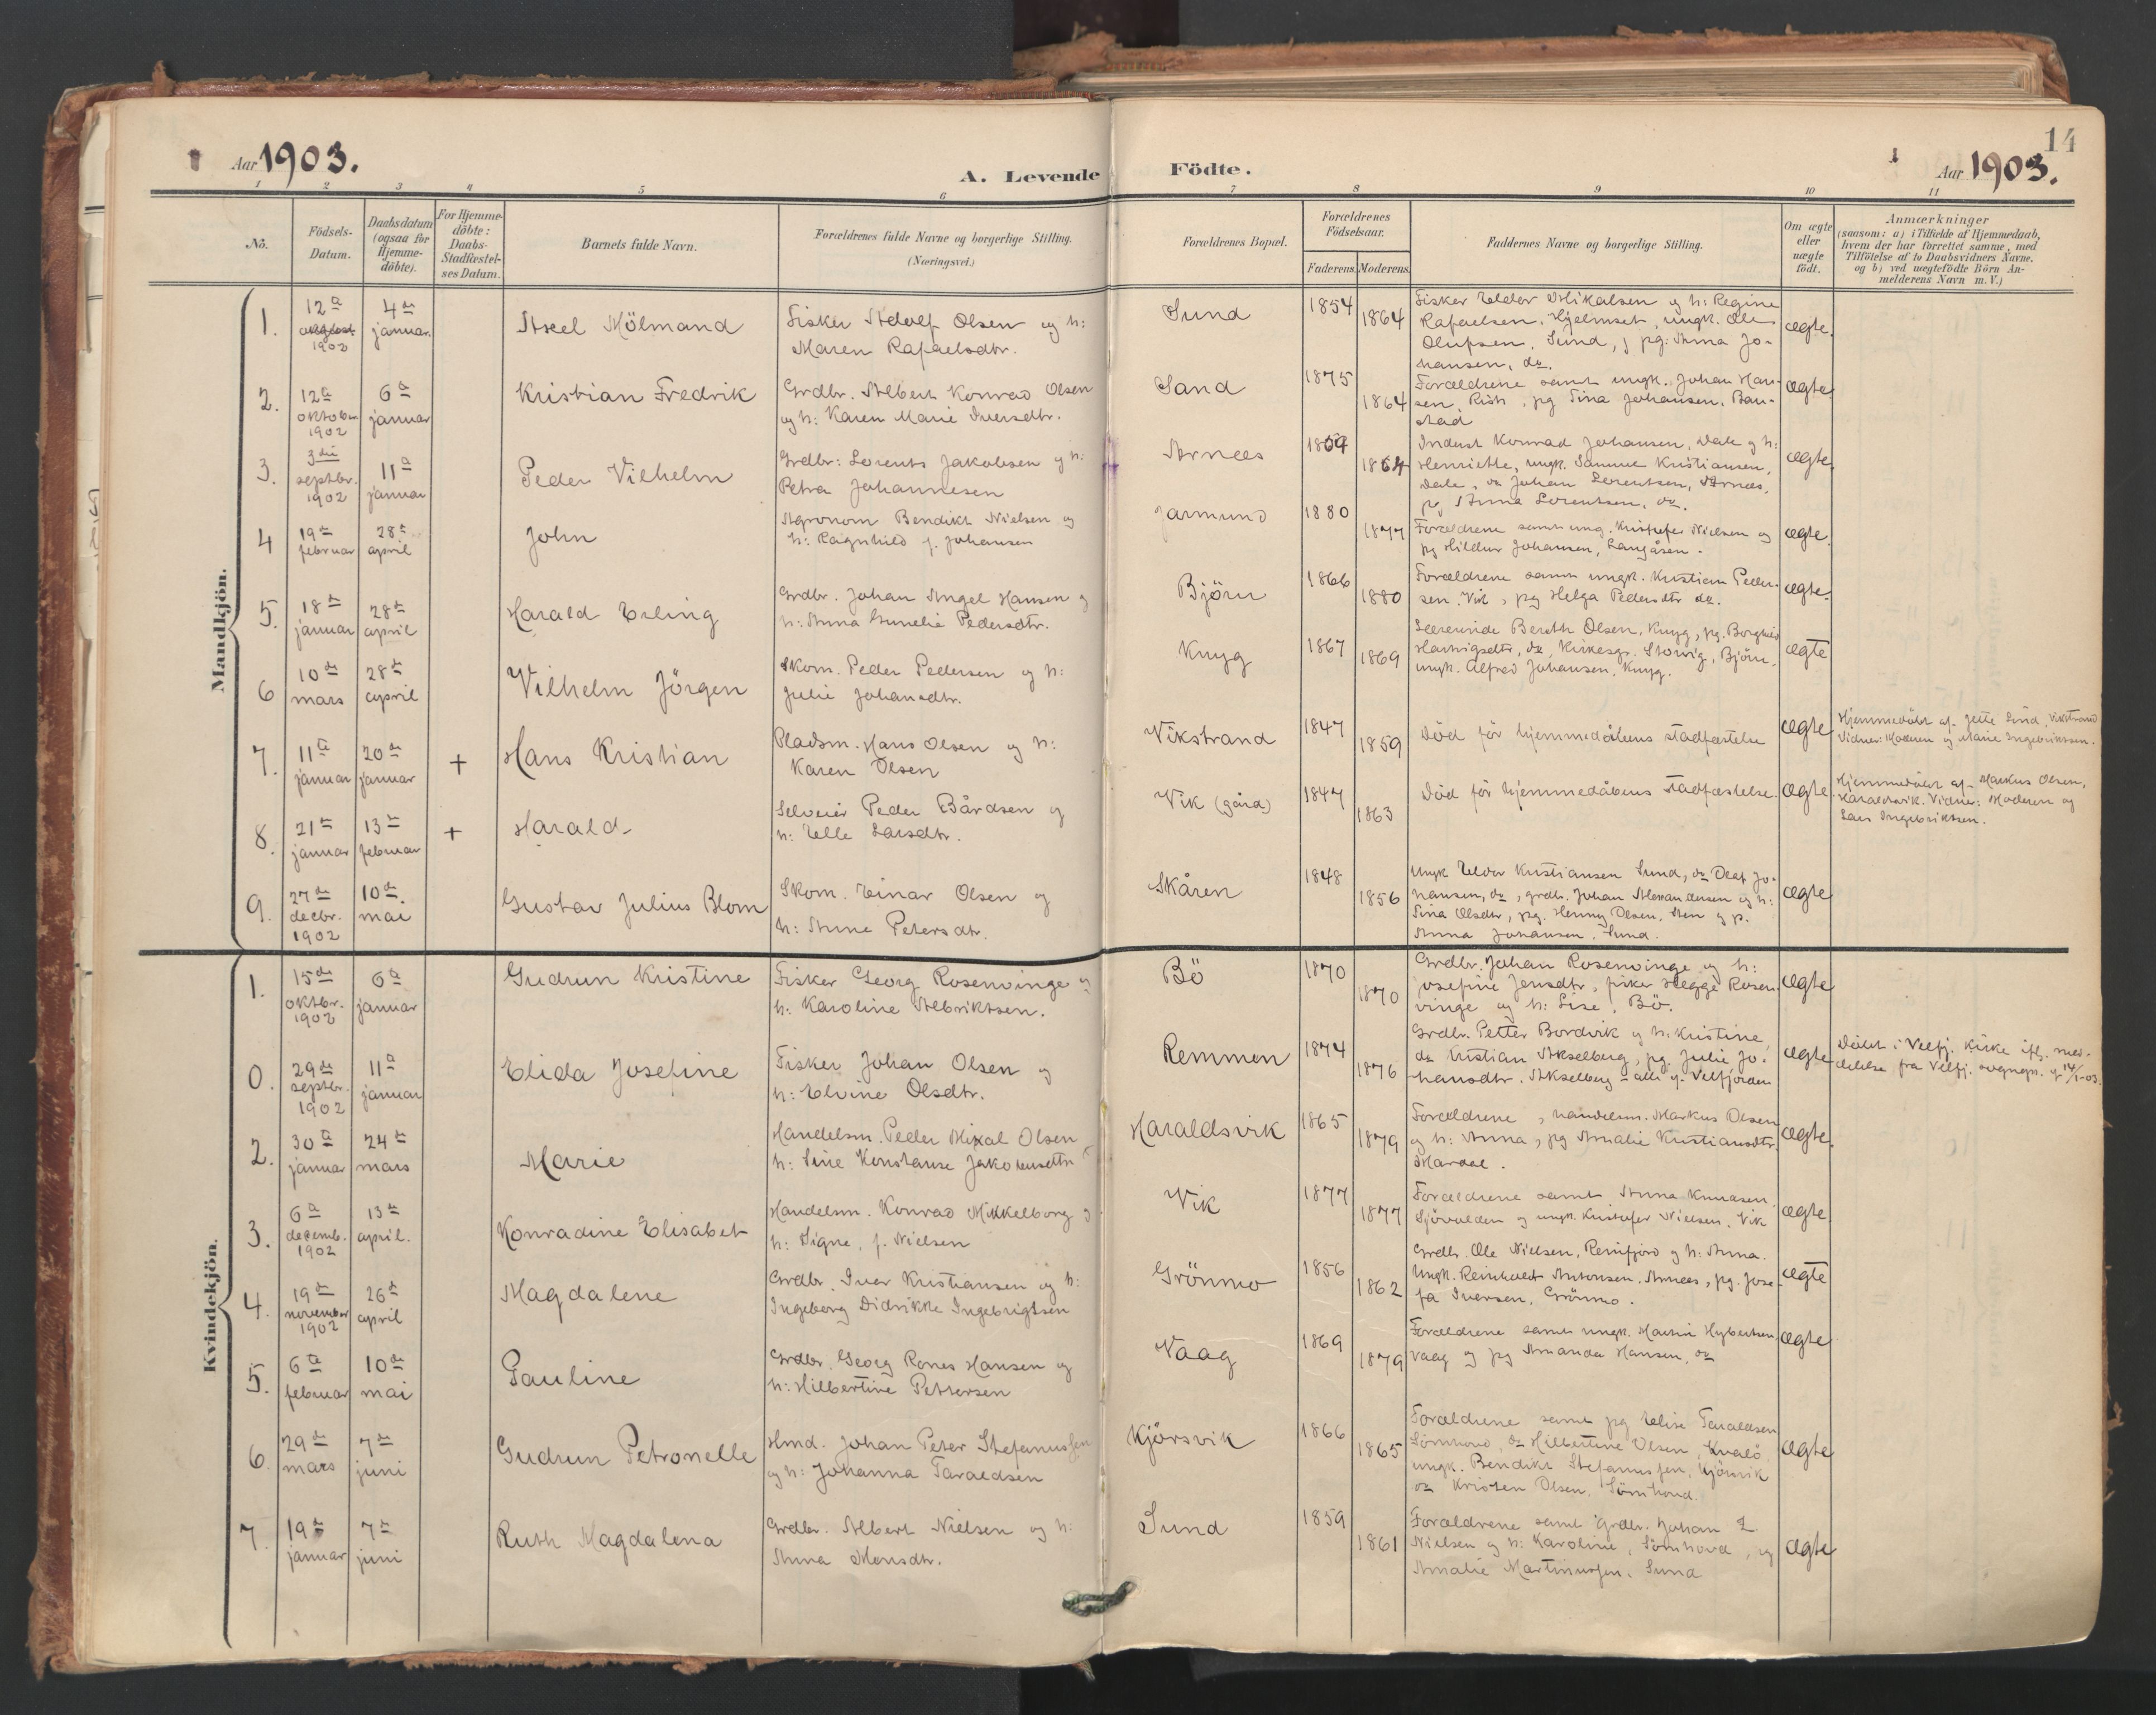 14
Aar 1903.
A. Levende Födte.
Aar 1903.
1 2 3 4 5 6 7 8 9 10 11
Nö.
Födsels-Datum.
Daabsdatum (ogsaa for Hjemmedöbte).
For Hjemmedöbte: Daabs-Stadfæstelses Datum.
Barnets fulde Navn.
Forældrenes fulde Navne og borgerlige Stilling. (Næringsvei.)
Forældrenes Bopæl.
Forældrenes Födselsaar.
Faderens. Moderens.
Faddernes Navne og borgerlige Stilling.
Om ægte eller uægte födt.
Anmærkninger
(saasom: a) i Tilfælde af Hjemmedaab, hvem der har forrettet samme, med Tilföielse af to Daabsvidners Navne, og b) ved uægtefödte Börn Anmelderens Navn m. V.)
Mandkjön.
1. 12te 1902 4de januar. Axel Mölmand
Fisker Adolf Olsen og h:
Maren Rafaelsdtr.
Sund 1854 1864
Fisker Eldor Mikalsen og h: Regine
Rafaelsen, Hjelmset, ungk. Ole
Olufsen, Sund, pg: Anna Jo-
hansen, do.
ægte.
2. 12te oktober 1902 6te januar Kristian Fredrik
Grdbr. Albert Konrad Olsen
og h: Karen Marie Iversdtr.
Sand 1875 1864
Forældrene samt ungk. Johan Han-
sen, Rish, pg Tina Johansen, Bau-
stad
ægte
3. 3die septbr. 1902 11te januar Peder Vilhelm
Grdbr: Lorents Jakobsen og h:
Petra Johannesen
Arnes 1864
Inderst Konrad Johansen, Dale og h:
Henriette, ungk. Kristiansen,
Dale, do Johan Lorentsen, Arnes,
pg Anna Lorentsen, do.
ægte.
4 19de februar 28de april John
Agronom Bendikt Nielsen og
h: Ragnhild f. Johansen
Jarmund 1880 1877
Forældrene samt ung. Kristofer Nielsen og
pg Hildur Johansen, Langåsen.
ægte.
5. 18de januar 28de april Harald Erling
Grdbr. Johan Angel Hansen og
h: Anna Gunelie Pedersdtr.
Björn 1866 1880
Forældrene samt ungk. Kristian Peder-
sen, Vik, pg Helga Pedersdtr do.
ægte.
6 10de mars 28de april Vilhelm Jörgen
Skom. Peder Pedersen og h:
Julie Johansdtr.
Knyg 1867 1869
Lærerinde Bergth Olsen, Knyg, pg. Borghild
Hartvigsdtr, do, Kirkesgr. Storvig, Björn,
ungk. Alfred Johansen, Knyg.
ægte
7. 11te januar 20de januar + Hans Kristian
Pladsm. Hans Olsen og h:
Karen Olsen
Vikstrand 1847 1859
Död för hjemmedåbens stadfæstelse
ægte
Hjemmedöbt af Jette Lind, Vikstrand
Vidner: Moderen og Marie Ingebriktsen.
8. 21de januar 13de februar + Harald
Selveier Peder Bårdsen og
h: Elle Larsdtr.
Vik (gård) 1847 1863
Död för hjemmedåbens stadfæstelse.
ægte
Hjemmedöbt af Markus Olsen,
Haraldsvik. Vidner: Moderen og
Lars Ingebriktsen.
9. 27de decbr. 1902 10de mai Gustav Julius Blom
Skom. Einar Olsen og
h: Anne Petersdtr.
Skåren 1848 1856
Ungk Eldor Kristiansen Sund, do Olaf Jo-
hansen, do, grdb. Johan Alexandersen og h:
Tina Olsdtr, pg. Henny Olsen, og p.
Anna Johansen, Sund.
ægte
Kvindekjön.
1. 15de oktbr. 1902 6te januar Gudrun Kristine
Fisker Georg Rosenvinge og
h: Karoline Albriktsen.
Bö 1870 1870
Grdbr. Johan Rosenvinge og h:
Josefine Jensdtr, fisker Hegge Rosen-
vinge og h: Lise, Bö.
ægte
0. 29de septbr. 1902 11te januar Elida Josefine
Fisker Johan Olsen og
h: Elvine Olsdtr.
Remmen 1874 1876
Grdbr. Petter Bordvik og h: Kristine,
do Kristian Akselberg, pg. Julie Jo-
hansdtr. Akselberg – alle af Velfjorden
ægte
Döbt i Velfj. kirke ifg. med-
delelse fra Velfj. sogngp. af 14/1-03.
2. 30te januar 24de mars Marie
Handelsm. Peder Mikal Olsen
h: Line Konstanse Jakobsdtr
Haraldsvik 1865 1879
Forældrene, handelsm. Markus Olsen
og h: Anna, pg Amalie Kristiansdtr.
Mardal.
ægte.
3. 6te decemb. 1902 13de april. Konradine Elisabet
Handelsm. Konrad Mikkelborg og
h: Signe, f. Nielsen
Vik 1877 1877
Forældrene samt Anna Knudsen
Sjövolden og ungk. Kristofer Nielsen, Vik
ægte
4. 19de november 1902 26de april Magdalene
Grdbr. Iver Kristiansen og h:
Ingeborg Didrikke Ingebrigtsen
Grönmo 1856 1862
Grdbr. Ole Nielsen, Reinfjord og h: Anna.
Ungk. Reinholdt Antonsen, Arnes, pg. Jose-
fa Iversen, Grönmo.
ægte
5. 6te februar 10de mai Pauline
Grdbr. Georg Rones Hansen og
h: Hilbertine Pettersen
Vaag 1869 1879
Forældrene samt ungk. Martin Hybertsen,
Vaag og pg Amanda Hansen, do
ægte
6. 29de mars 7de juni Gudrun Petronelle
Hmd. Johan Peter Stefanussen
og h: Johanna Taraldsen
Kjörsvik 1866 1865
Forældrene samt pg Elise Taraldsen
Sömhovd, do Hilbertine Olsen, Kvalö
ungk. Bendikt Stefanussen, Kjörsvik
do Kristen Olsen, Sömhovd.
ægte
7. 19de januar 7de juni Ruth Magdalena
Grdbr. Albert Nielsen og h:
Anna Monsdtr.
Sund 1859 1861
Forældrene samt grdbr. Johan Z.
Nielsen og h: Karoline, Sömhovd, og
Amalie Martinussen, Sund
ægte